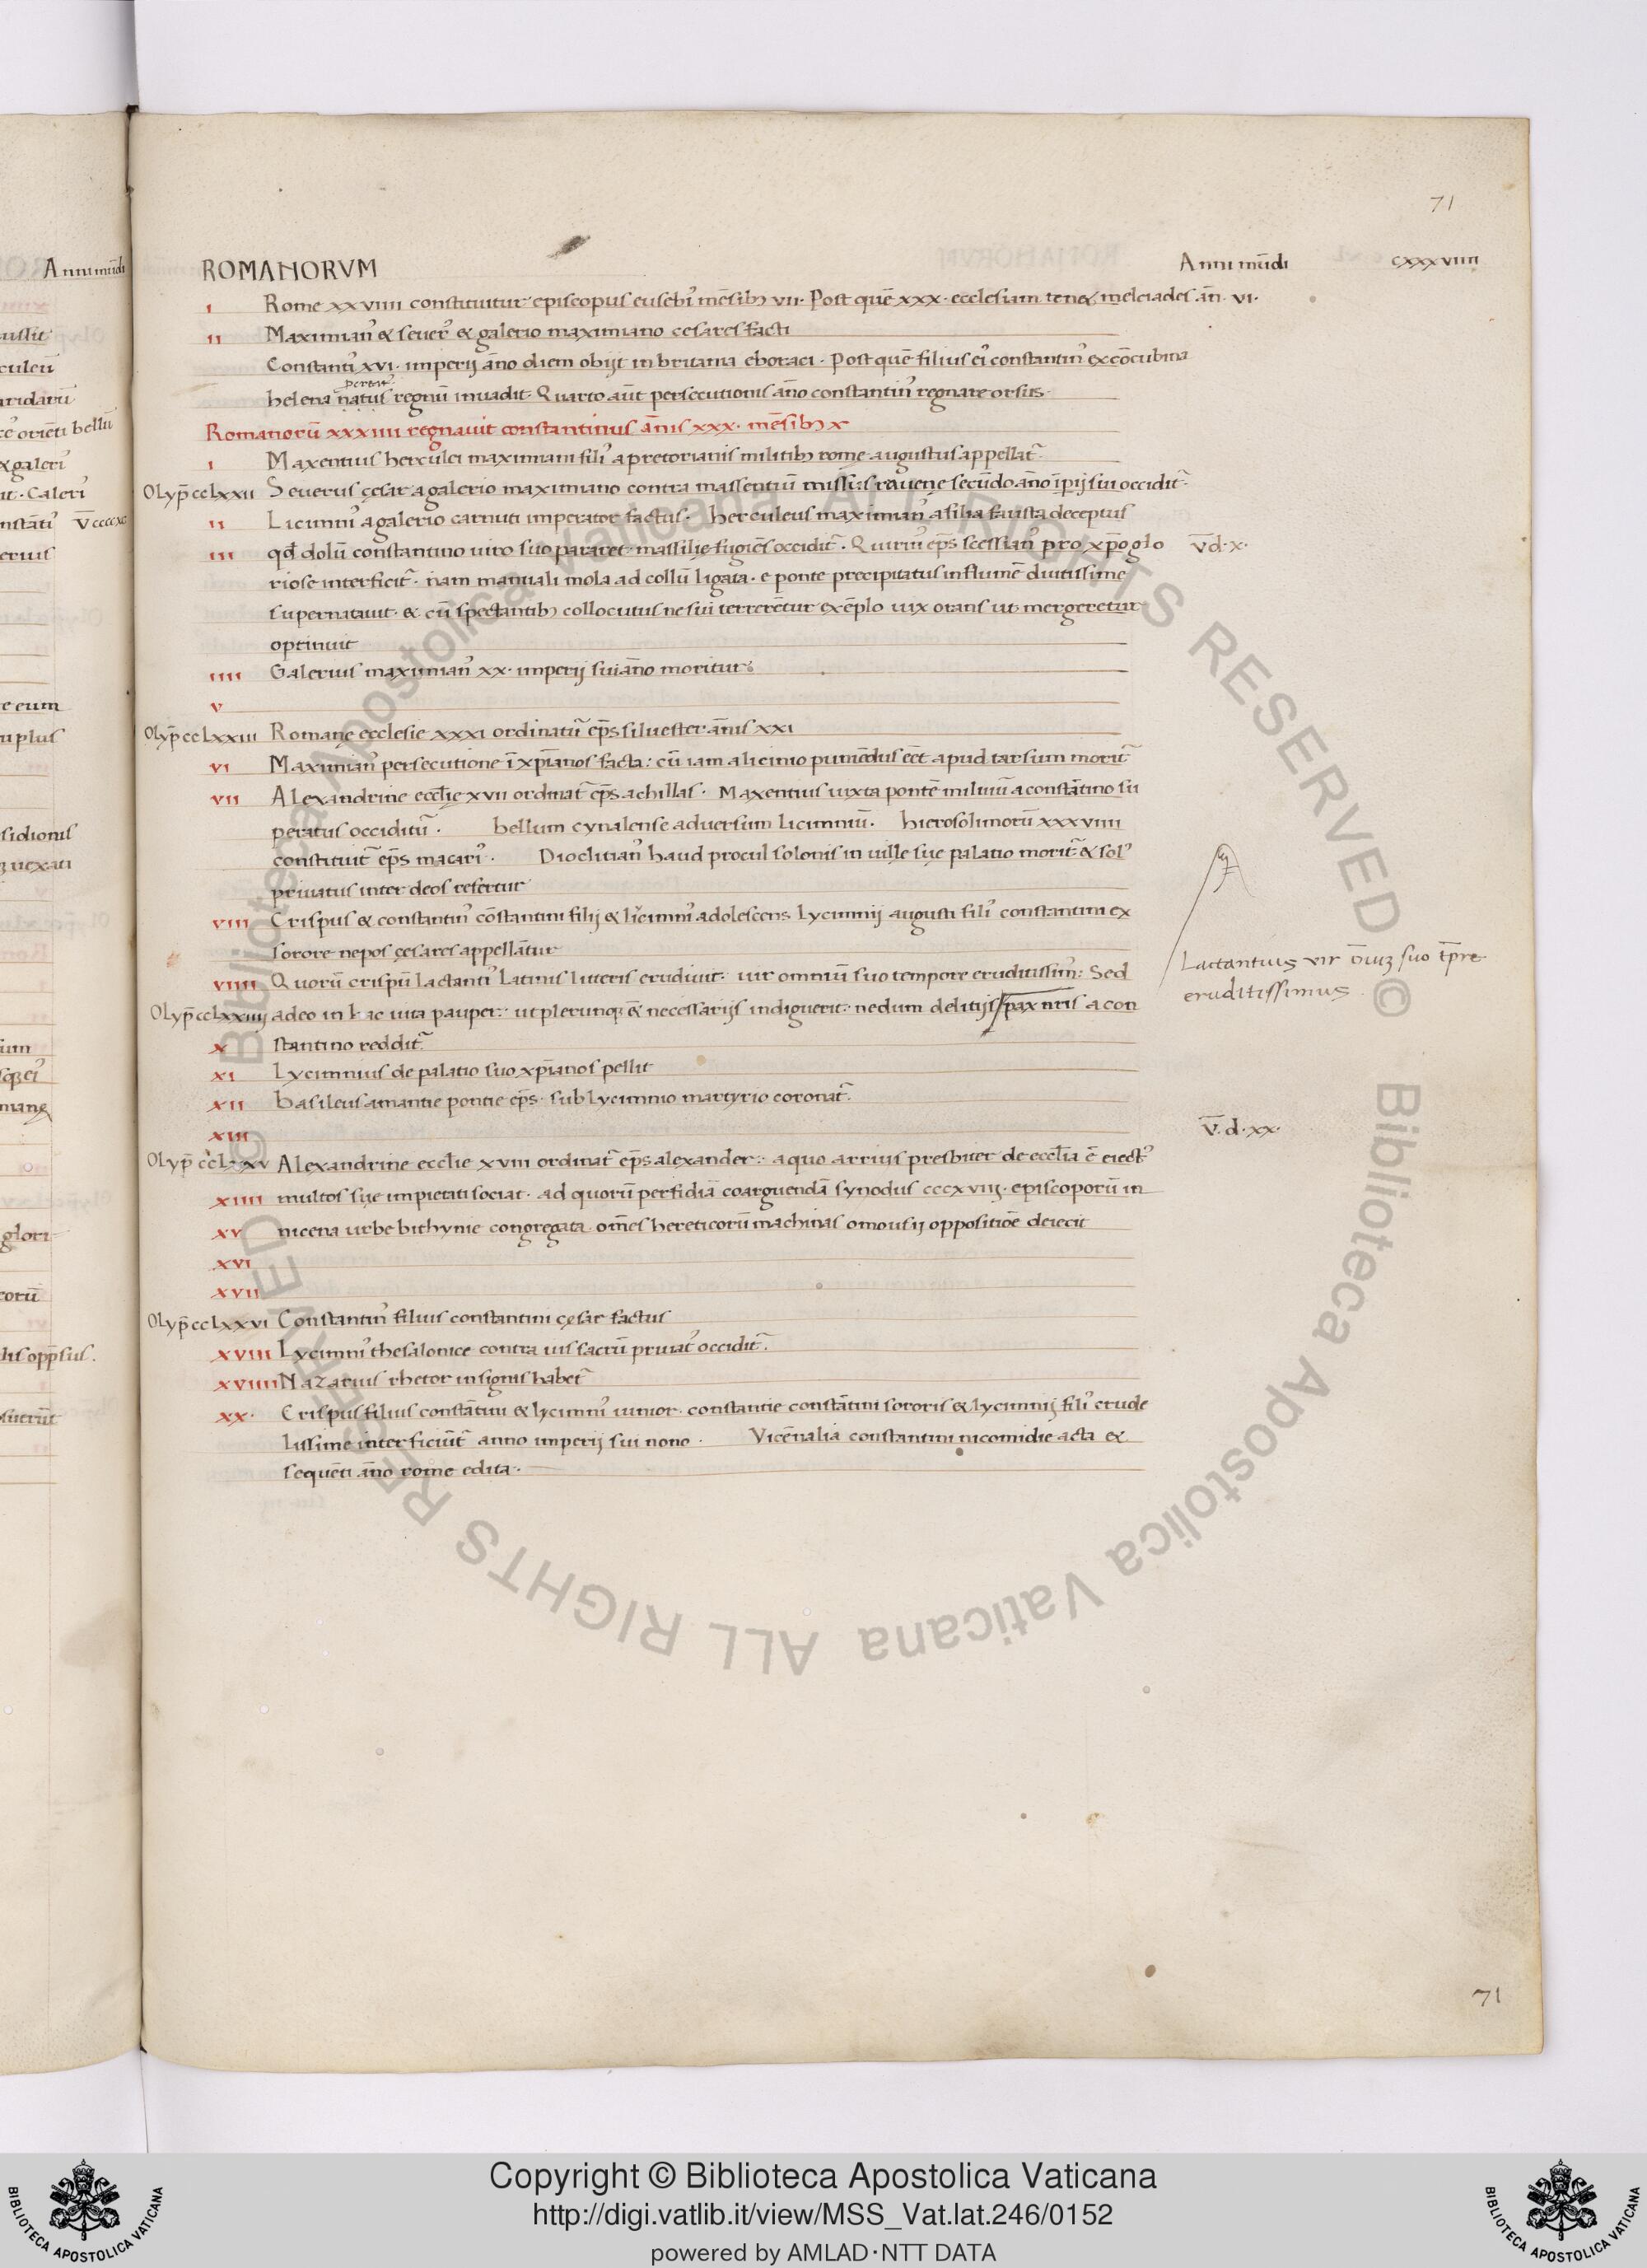 71
ROMANORVM Anni mūdi cxxxviiii
i Rome xxviiii constituitur episcopus eusebiꝰ mēsibꝫ vii. Post quē xxx. ecclesiam tenet melciades añ. vi.
ii Maximianꝰ & seuerꝰ & galerio maximiano cesares facti
Constantiꝰ xvi. imperij año diem obijt in britania eboraci. Post quē filius eiꝰ constantinꝰ ex cōcubina
helena natus regnū inuadit. Quarto aūt persecutionis año constantinꝰ regnare orsus.
Romanorū xxxiiii regnauit constantinus ānis xxx. mēsibꝫ x
i Maxentius herculei maximiani filiꝰ a pretorianis militibꝫ rome augustus appellat᷑
Olyp̄ cclxxii Seuerus cęsar a galerio maximiano contra massentiū missus rauenę secūdo año īpij sui occidit᷑
ii Licinniꝰ a galerio carnuti imperator factus. herculeus maximianꝰ a filia fausta deceptus
iii qđ dolū constantino uiro suo pararet massilię fugiēs occidit᷑. Quirinꝰ ep̄s scessianꝰ pro xp̄o glo v̄.d.x.
riose interficit᷑. nam manuali mola ad collū ligata. e ponte precipitatus in flumē diutissime
supernatauit. & cū spectantibꝫ collocutus ne sui terrerētur exēplo uix orans ut mergeretur
optinuit
iiii Galerius maximianꝰ xx. imperij sui año moritur.
v
Olyp̄ cclxxiii Romanę ecclesie xxxi ordinatū ep̄s siluester ānis xxi
vi Maximianꝰ persecutione ī xp̄ianos facta: cū iam a licinio puniēdus eēt apud tarsum morit᷑
vii Alexandrine eccl̄ię xvii ordinat᷑ ep̄s achillas. Maxentius iuxta pontē miluiū a constātino su
peratus occiditū. bellum cynalense aduersum licinniū. hierosolimorū xxxviiii
constituit᷑ ep̄s macariꝰ. Dioclitianꝰ haud procul solonis in uillę suę palatio morit᷑ & solꝰ
priuatus inter deos refertur
viii Crispus & constantinꝰ cōstantini filij & licinniꝰ adolescens Lycinnij augusti filiꝰ constantini ex
sorore nepos cęsares appellātur
viiii Quorū crispū lactantiꝰ Latinis litteris erudiuit. uir omniū suo tempore eruditissimꝰ: Sed
Lactantius vir oīuꝫ suo tp̄re
eruditissimus
Olyp̄ cclxxiiij adeo in hac uita pauper: ut plerunqꝫ & necessarijs indiguerit. nedum delitijs / pax nr̄is a con
x stantino reddit᷑
xi Lycinnius de palatio suo xp̄ianos pellit
xii basileus amantie pontie ep̄s. sub Lycinnio martyrio coronat᷑.
xiii v̄.d.xx.
Olyp̄ cclxxv Alexandrine eccl̄ie xviii ordinat᷑ ep̄s alexander: a quo arrius presbiter de eccl̄ia ē eiectꝰ
xiiii multos suę impietati sociat. ad quorū perfidiā coarguendā synodus cccxviij. episcoporū in
xv nicena urbe bithynie congregata om̄es hereticorū machinas omousij oppositiōe deiecit
xvi
xvii
Olyp̄ cclxxvi Constantinꝰ filius constantini cęsar factus
xviii Lycinniꝰ thesalonice contra ius sacrū priuatꝰ occidit᷑.
xviiii Nazarius rhetor insignis habet᷑
xx. Crispus filius constātini & lycinniꝰ iunior. constantie constātini sororis & lycinnij filiꝰ crude
lissime interficiūt᷑ anno imperij sui nono. Vicēnalia constantini nicomidie acta &
sequēti año rome edita.
71
Copyright © Biblioteca Apostolica Vaticana
http://digi.vatlib.it/view/MSS_Vat.lat.246/0152
powered by AMLAD·NTT DATA
BIBLIOTECA APOSTOLICA VATICANA
BIBLIOTECA APOSTOLICA VATICANA
Biblioteca Apostolica Vaticana ALL RIGHTS RESERVED ©
Biblioteca Apostolica Vaticana ALL RIGHTS RESERVED ©